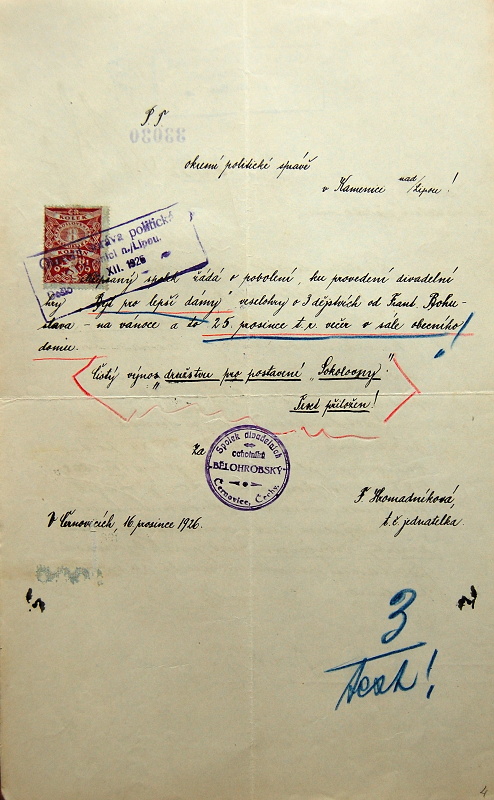 P. T.
33030
okresní politické správě
v Kamenici nad/Lipou!
KOLEK
1
Okresní správa politická
v Kamenici n./Lipou.
XII. 1926
Došlo
spolek žádá o povolení, ku provedení divadelní
hry „Byt pro lepší dámy" veselohry o 3 dějstvích od Frant. Bohu-
slava - na vánoce a to 25. prosince t. r. večer v sále obecního
domu.
Čistý výnos „družstvu pro postavení „Sokolovny".
Text přiložen!
Za
Spolek divadelních
ochotníků
BĚLOHROBSKÝ
Černovice, Čechy.
F. Hromadníková,
t. č. jednatelka.
V Černovicích, 16 prosince 1926.
3
text!
4